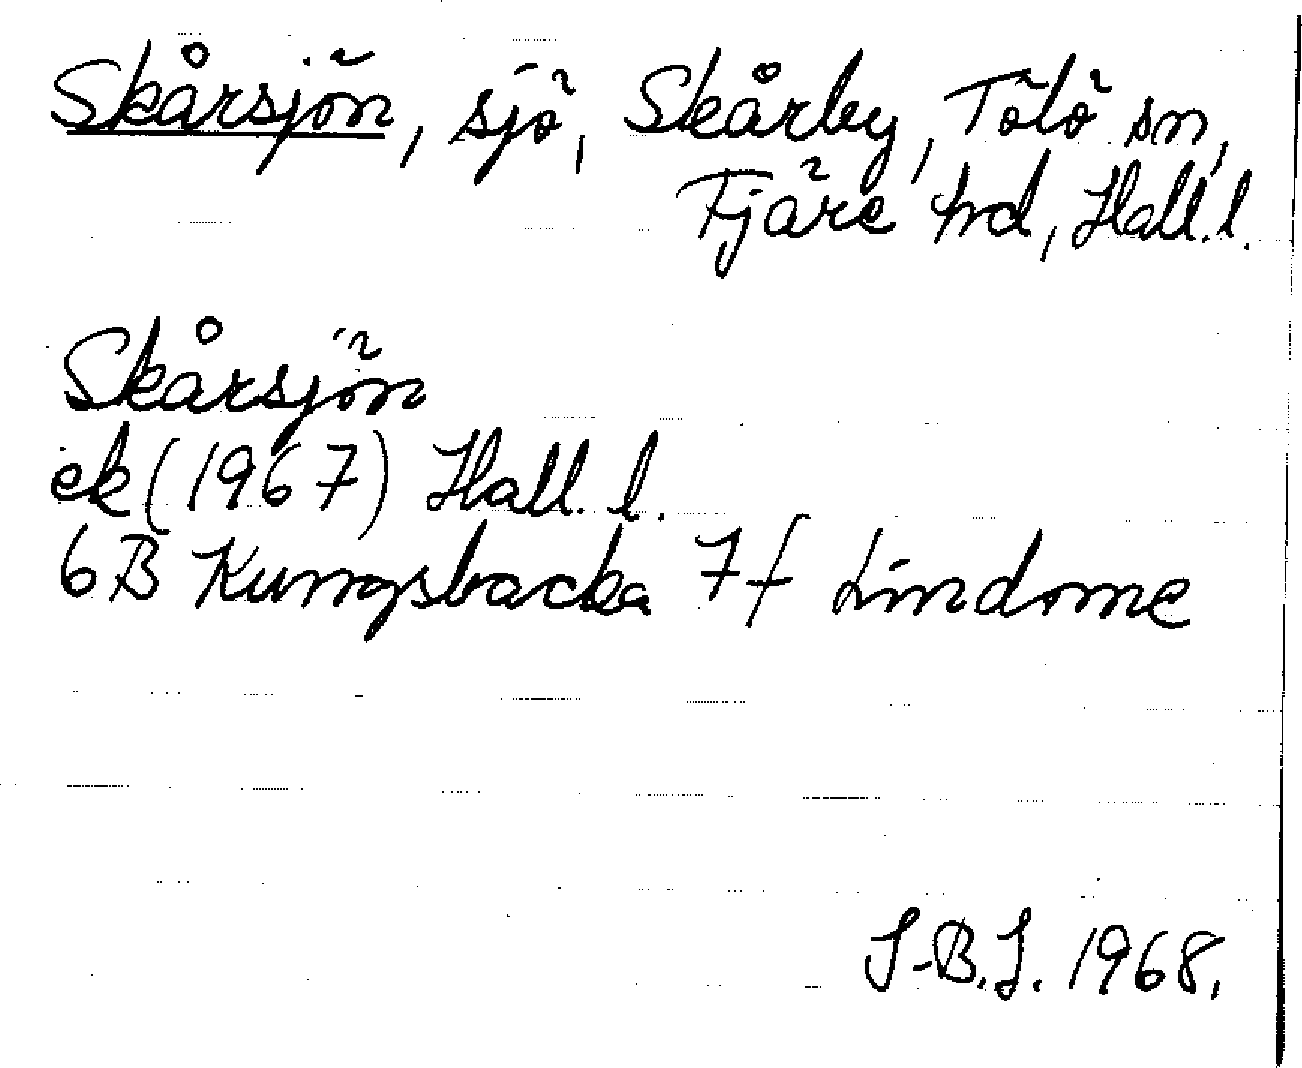 Skårsjön, sjö, Skårby, Tölö sn,
Fjäre hd, Hall. l.
Skårsjön
ek (1967) Hall. l.
6B Kungsbacka 7f Lindome
J-B.J. 1968.